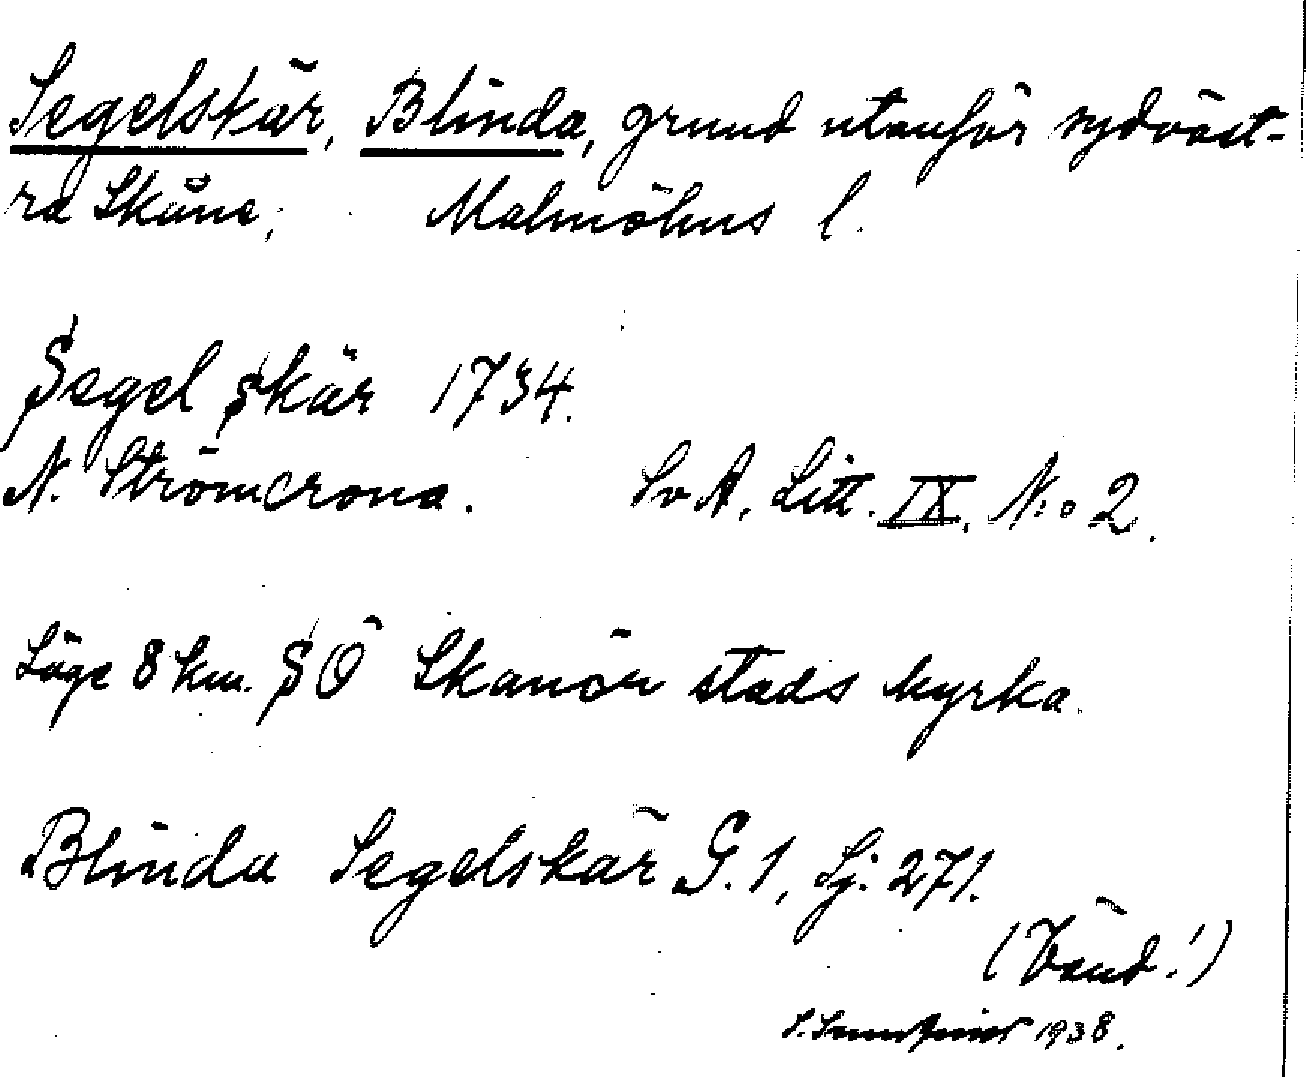 Segelskär, Blinda, grund utanför sydväst-
ra Skåne, Malmöhus l.
Segel skär 1734.
N. Strömcrona. SvA, Litt. IX, N:o 2.
Läge 8 km. SÖ Skanör stads kyrka.
Blinda Segelskär G. 1, Sj. 271.
(Vänd!)
1938.